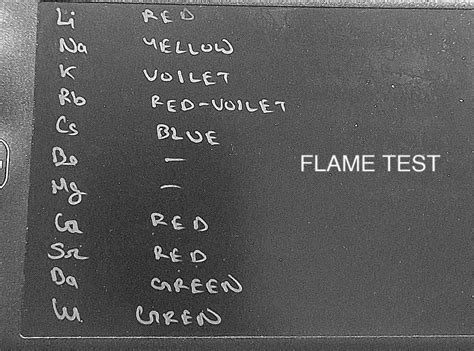 Li RED
Na YELLOW
K VOILET
Rb RED-VOILET
Cs BLUE
Be –
Mg –
FLAME TEST
Ca RED
Sr RED
Ba GREEN
GREEN